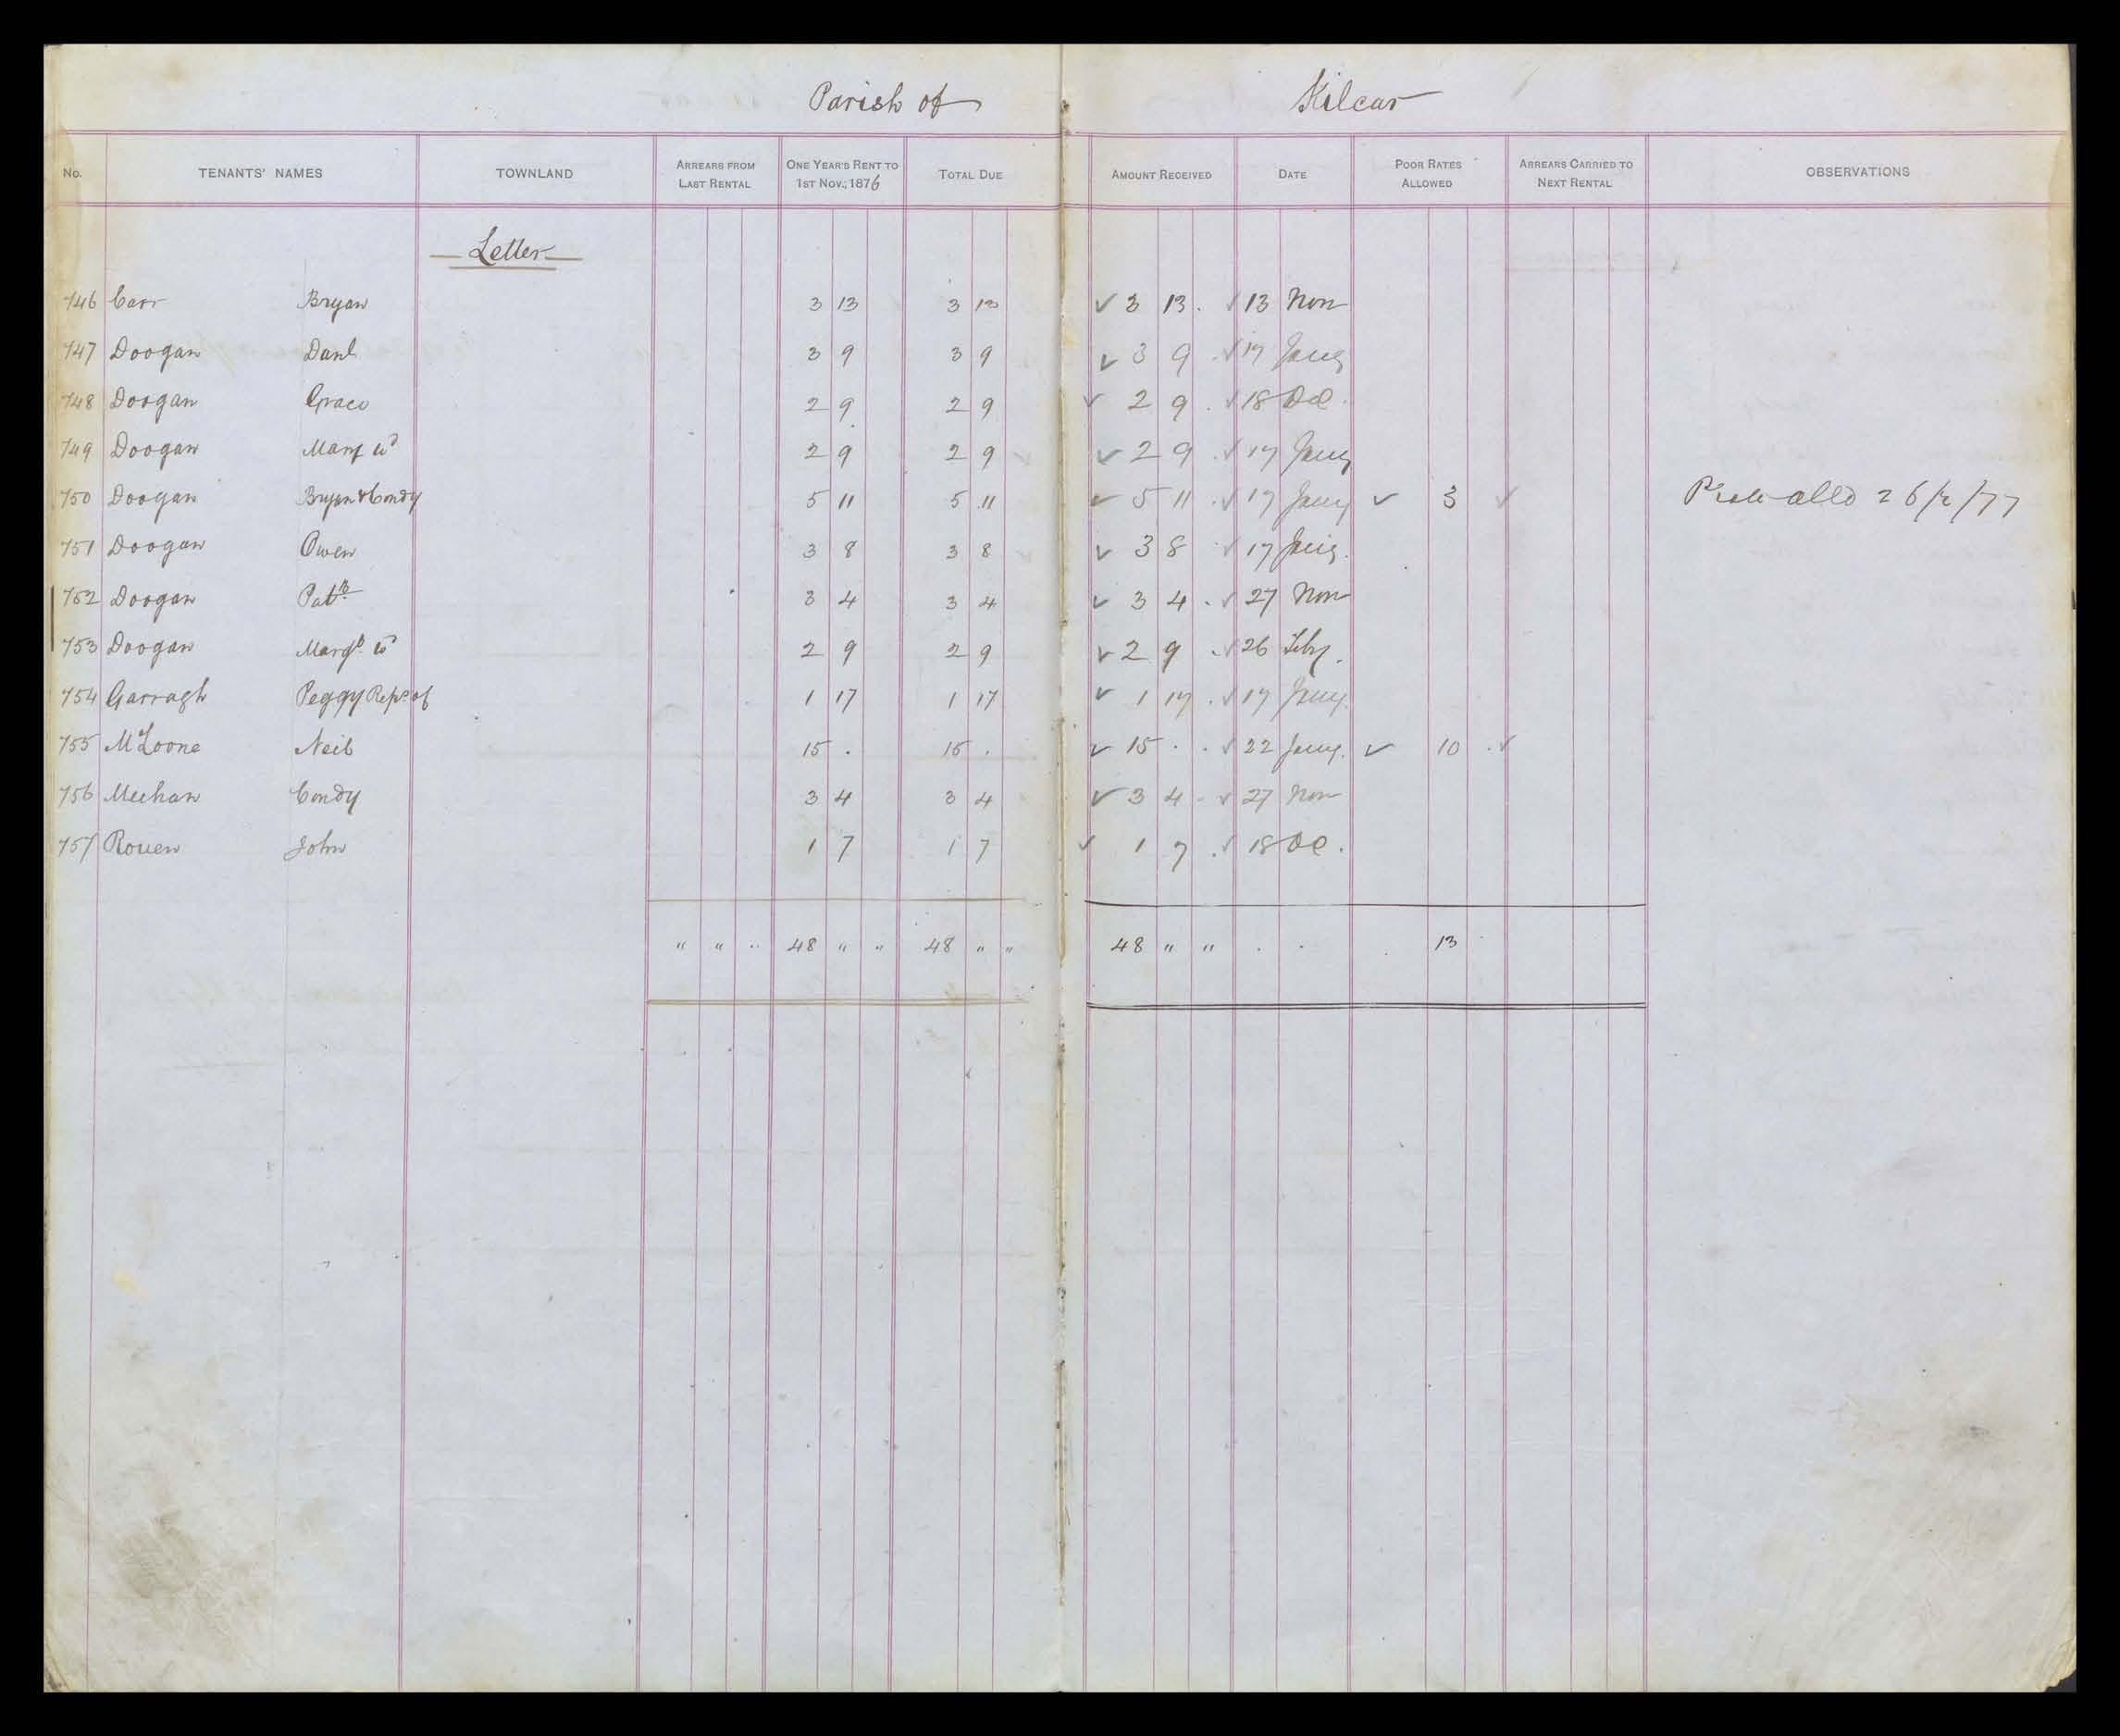 Parish of Kilcar
No. TENANTS' NAMES TOWNLAND ARREARS FROM LAST RENTAL ONE YEAR'S RENT TO 1ST NOV., 1876 TOTAL DUE AMOUNT RECEIVED DATE POOR RATES ALLOWED ARREARS CARRIED TO NEXT RENTAL OBSERVATIONS
Letter
746 Carr Bryan 3 13 3 13 ✓ 3 13 . ✓ 13 Nov
747 Doogan Danl 3 9 3 9 ✓ 3 9 . ✓ 17 Jany
748 Doogan Grace 2 9 2 9 ✓ 2 9 . ✓ 18 Dec .
749 Doogan Mary wd 2 9 2 9 ✓ 2 9 . ✓ 17 Jany
750 Doogan Bryan & Condy 5 11 5 11 ✓ 5 11 . ✓ 17 Jany ✓ 3 ✓ alld 26/2/77
751 Doogan Owen 3 8 3 8 ✓ 3 8 . ✓ 17 Jany.
752 Doogan Patk 3 4 3 4 ✓ 3 4 . ✓ 27 Nov
753 Doogan Margt wd 2 9 2 9 ✓ 2 9 . ✓ 26 Feby.
754 Garragh Peggy Reps of 1 17 1 17 ✓ 1 17 . ✓ 17 Jany.
755 McLoone Neil 15 . 15 . ✓ 15 . . ✓ 22 Jany. ✓ 10 . ✓
756 Meehan Condy 3 4 3 4 ✓ 3 4 . ✓ 27 Nov
757 Rouen John 1 7 1 7 ✓ 1 7 . ✓ 18 Dec .
" " " 48 " " 48 " " 48 " " . . . 13